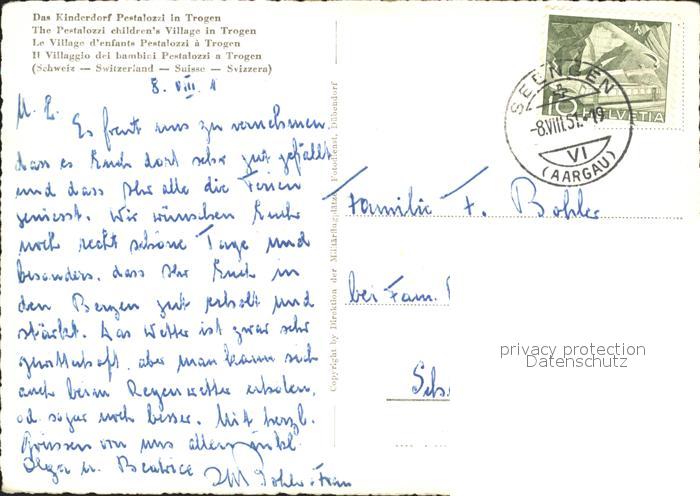 Das Kinderdorf Pestalozzi in Trogen
The Pestalozzi children's Village in Trogen
Le Village d'enfants Pestalozzi à Trogen
Il Villaggio dei bambini Pestalozzi a Trogen
(Schweiz — Switzerland — Suisse — Svizzera)
8. VIII.
M. L.
Es freut uns zu vernehmen
dass es Euch dort sehr gut gefällt
und dass Ihr alle die Ferien
geniesst. Wir wünschen Euch
noch recht schöne Tage und
besonders, dass Ihr Euch in
den Bergen gut erholt und
stärkt. Das Wetter ist zwar sehr
aber man kann sich
auch beim Regenwetter erholen,
od. sogar noch besser. Mit herzl.
Grüssen von uns allen
Olga u. Beatrice
Copyright by Direktion der Militärflugplätze, Fotodienst, Dübendorf
SEENGEN
-8.VIII.51.-19
VI
(AARGAU)
10 HELVETIA
Familie F. Bohler
bei Fam.
privacy protection
Datenschutz